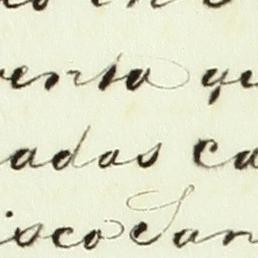 venta qu
adas ca
isco San